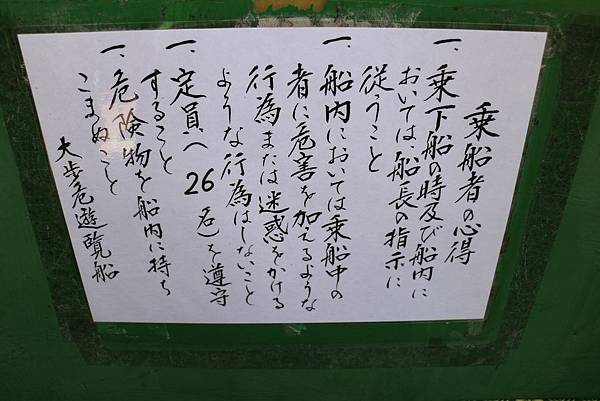 乗船者の心得
一、乗下船の時及び船内に
おいては、船長の指示に
従うこと
一、船内においては乗船中の
者に危害を加えるような
行為または迷惑をかける
ような行為はしないこと
一、定員へ26名)を遵守
すること
一、危険物を船内に持ち
こまぬこと
大歩危遊覧船